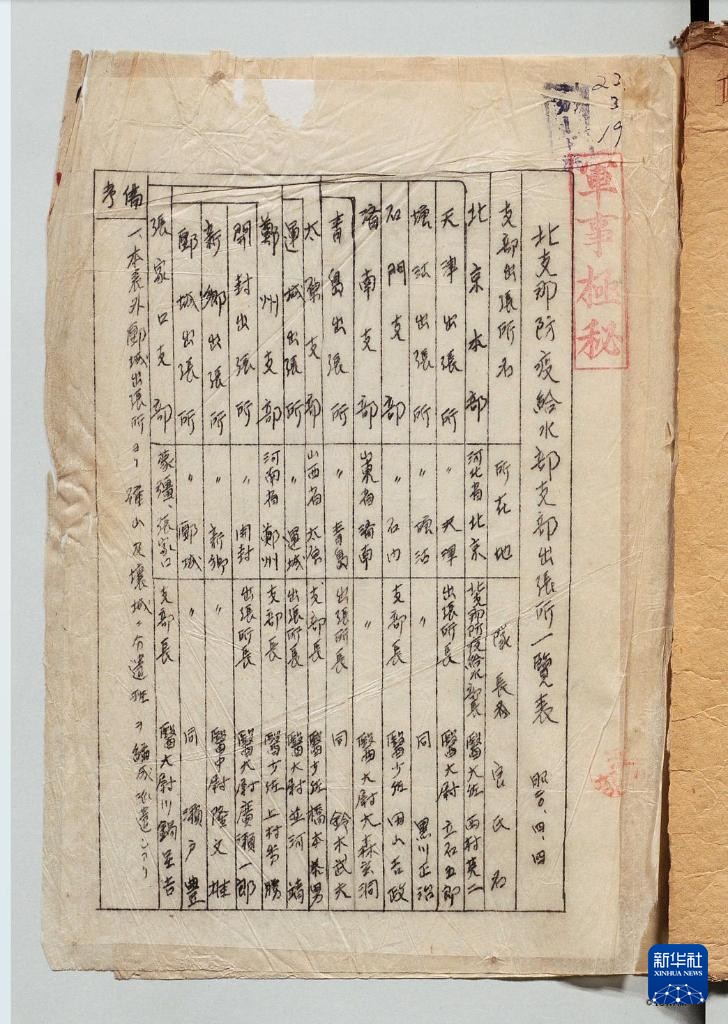 23.
3
19
軍事極秘
北支那防疫給水部支部出張所一覧表 昭一〇.四.四
支部出張所名 所在地 隊長 官氏名
北京本部 河北省北京 北支那防疫給水部長 醫大佐 西村英二
天津出張所 〃 天津 出張所長 醫大尉 立石五郎
塘沽出張所 〃 塘沽 〃 同 黒川正治
石門支部 〃 石門 支部長 醫少佐 田山吉政
濟南支部 山東省濟南 〃 醫大尉 大森玄洞
青島出張所 〃 青島 出張所長 同 鈴木武夫
太原支部 山西省太原 支部長 醫少佐 橋本 男
運城出張所 〃 運城 出張所長 醫大尉 並河靖
鄭州支部 河南省鄭州 支部長 醫少佐 上村 勝
開封出張所 〃 開封 出張所長 醫大尉 廣瀬一郎
新鄉出張所 〃 新鄉 〃 醫中尉 隆文雄
郾城出張所 〃 郾城 〃 同 瀬戸豊
張家口支部 蒙疆、張家口 支部長 醫大尉 川鍋里吉
備考
一、本表外郾城出張所ヨリ確山及襄城ニ分遣班ヲ編成派遣シアリ
新华社
XINHUA NEWS